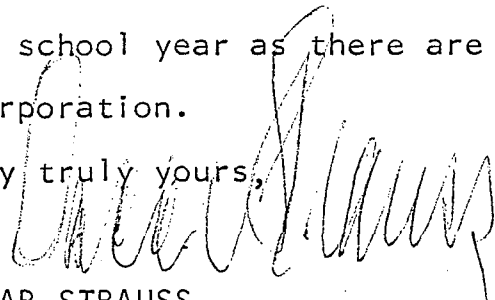 school year as there are
rporation.
y truly yours,
AR STRAUSS